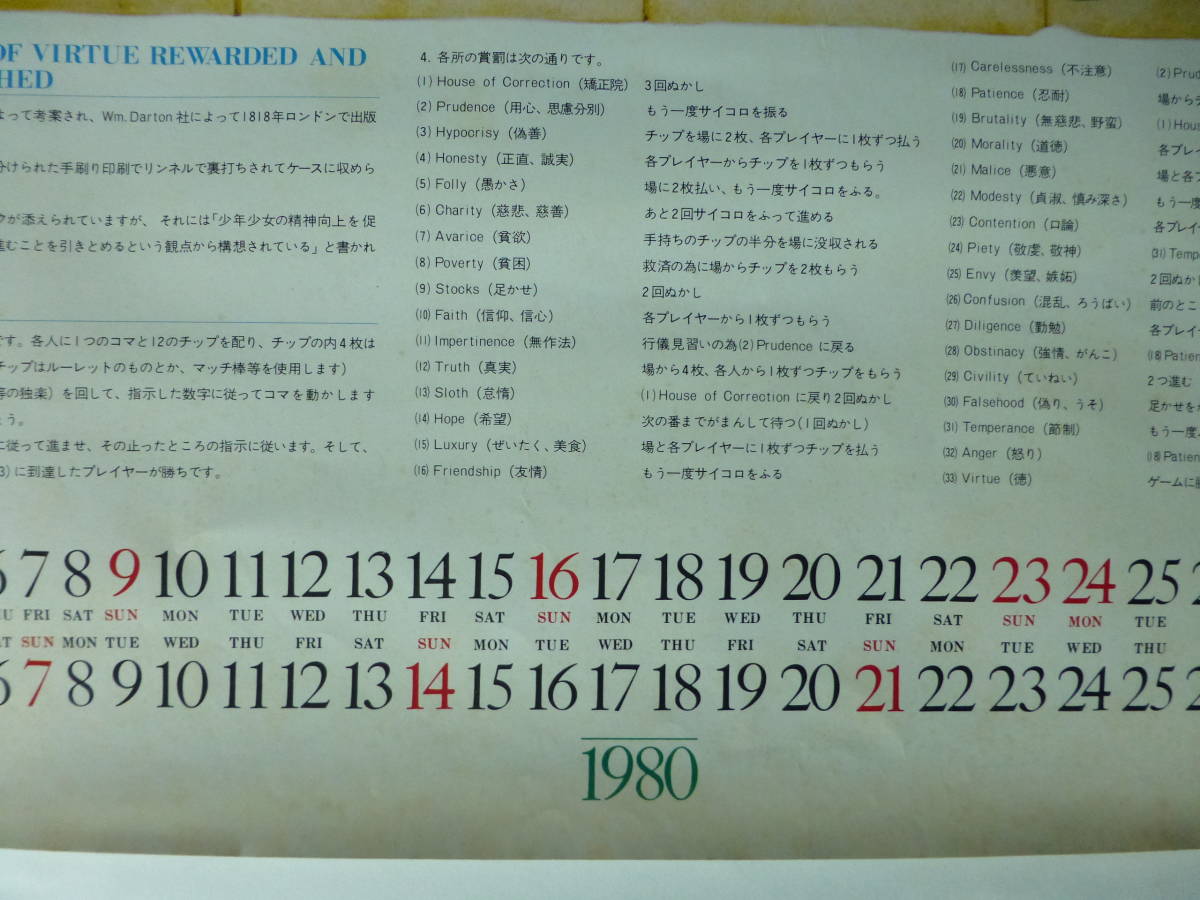 OF VIRTUE REWARDED AND
HED
よって考案され、Wm. Darton 社によって1818年ロンドンで出版
分けられた手刷り印刷でリンネルで裏打ちされてケースに収めら
が添えられていますが、それには「少年少女の精神向上を促
進むことを引きとめるという観点から構想されている」と書かれ
です。各人に1つのコマと12のチップを配り、チップの内4枚は
チップはルーレットのものとか、マッチ棒等を使用します)
等の独楽)を回して、指示した数字に従ってコマを動かします
ょう。
に従って進ませ、その止ったところの指示に従います。そして、
3)に到達したプレイヤーが勝ちです。
4. 各所の賞罰は次の通りです。
(1) House of Correction (矯正院) 3回ぬかし
(2) Prudence (用心、思慮分別) もう一度サイコロを振る
(3) Hypocrisy (偽善) チップを場に2枚、各プレイヤーに1枚ずつ払う
(4) Honesty (正直、誠実) 各プレイヤーからチップを1枚ずつもらう
(5) Folly (愚かさ) 場に2枚払い、もう一度サイコロをふる。
(6) Charity (慈悲、慈善) あと2回サイコロをふって進める
(7) Avarice (貧欲) 手持ちのチップの半分を場に没収される
(8) Poverty (貧困) 救済の為に場からチップを2枚もらう
(9) Stocks (足かせ) 2回ぬかし
(10) Faith (信仰、信心) 各プレイヤーから1枚ずつもらう
(11) Impertinence (無作法) 行儀見習いの為(2) Prudence に戻る
(12) Truth (真実) 場から4枚、各人から1枚ずつチップをもらう
(13) Sloth (怠惰) (1) House of Correction に戻り2回ぬかし
(14) Hope (希望) 次の番までがまんして待つ(1回ぬかし)
(15) Luxury (ぜいたく、美食) 場と各プレイヤーに1枚ずつチップを払う
(16) Friendship (友情) もう一度サイコロをふる
(17) Carelessness (不注意) (2) Prud
(18) Patience (忍耐) 場からチ
(19) Brutality (無慈悲、野蛮) (1) Hous
(20) Morality (道徳) 各プレイ
(21) Malice (悪意) 場と各プ
(22) Modesty (貞淑、慎み深さ) もう一度
(23) Contention (口論) 各プレイ
(24) Piety (敬虔、敬神) (31) Temp
(25) Envy (羨望、嫉妬) 2回ぬか
(26) Confusion (混乱、ろうばい) 前のとこ
(27) Diligence (勤勉) 各プレイ
(28) Obstinacy (強情、がんこ) (18) Patien
(29) Civility (ていねい) 2つ進む
(30) Falsehood (偽り、うそ) 足かせを
(31) Temperance (節制) もう一度
(32) Anger (怒り) (18) Patien
(33) Virtue (徳) ゲームに
6 7 8 9 10 11 12 13 14 15 16 17 18 19 20 21 22 23 24 25 2
HU FRI SAT SUN MON TUE WED THU FRI SAT SUN MON TUE WED THU FRI SAT SUN MON TUE
AT SUN MON TUE WED THU FRI SAT SUN MON TUE WED THU FRI SAT SUN MON TUE WED THU
6 7 8 9 10 11 12 13 14 15 16 17 18 19 20 21 22 23 24 25 2
1980